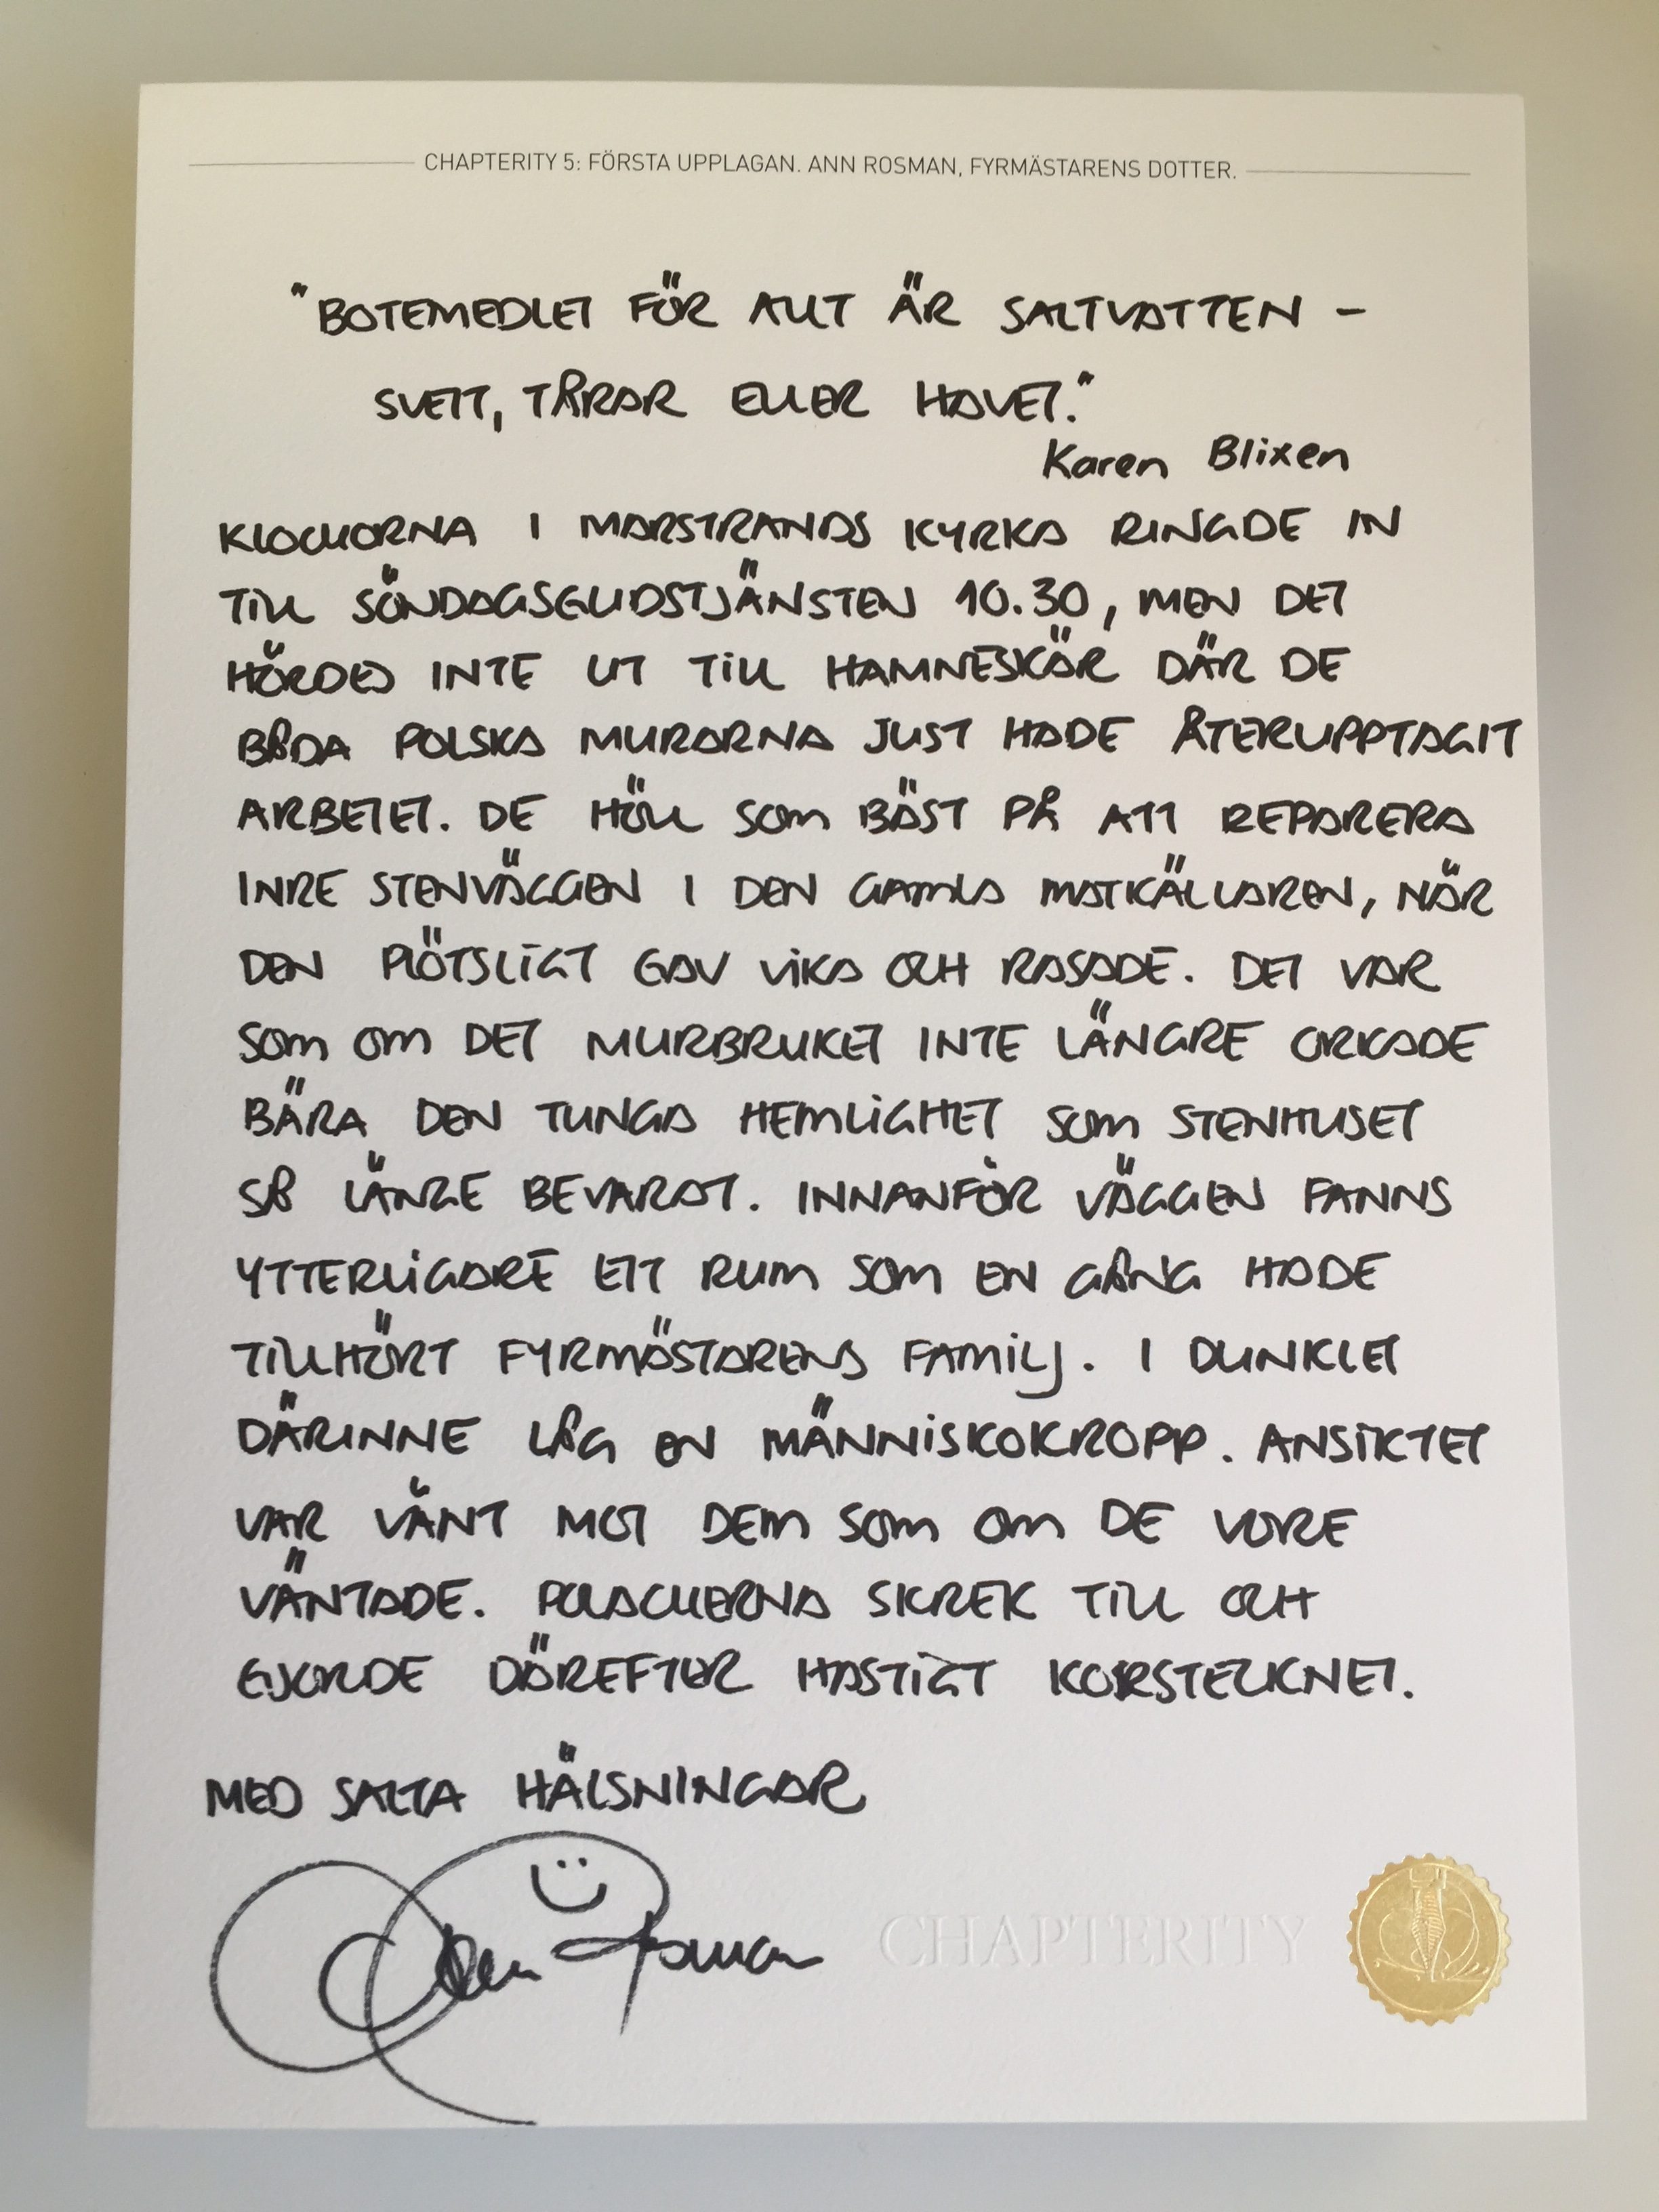 CHAPTERITY 5: FÖRSTA UPPLAGAN. ANN ROSMAN, FYRMÄSTARENS DOTTER.
"BOTEMEDLET FÖR ALLT ÄR SALTVATTEN –
SVETT, TÅRAR ELLER HAVET."
Karen Blixen
KLOCKORNA I MARSTRANDS KYRKA RINGDE IN
TILL SÖNDAGSGUDSTJÄNSTEN 10.30, MEN DET
HÖRDES INTE UT TILL HAMNESKÄR DÄR DE
BÅDA POLSKA MURARNA JUST HADE ÅTERUPPTAGIT
ARBETET. DE HÖLL SOM BÄST PÅ ATT REPARERA
INRE STENVÄGGEN I DEN GAMLA MATKÄLLAREN, NÄR
DEN PLÖTSLIGT GAV VIKA OCH RASADE. DET VAR
SOM OM DET MURBRUKET INTE LÄNGRE ORKADE
BÄRA DEN TUNGA HEMLIGHET SOM STENHUSET
SÅ LÄNGE BEVARAT. INNANFÖR VÄGGEN FANNS
YTTERLIGARE ETT RUM SOM EN GÅNG HADE
TILLHÖRT FYRMÄSTARENS FAMILJ. I DUNKLET
DÄRINNE LÅG EN MÄNNISKOKROPP. ANSIKTET
VAR VÄNT MOT DEM SOM OM DE VORE
VÄNTADE. POLACKERNA SKREK TILL OCH
GJORDE DÄREFTER HASTIGT KORSTECKNET.
MED SALTA HÄLSNINGAR
Ann Rosman
CHAPTERITY